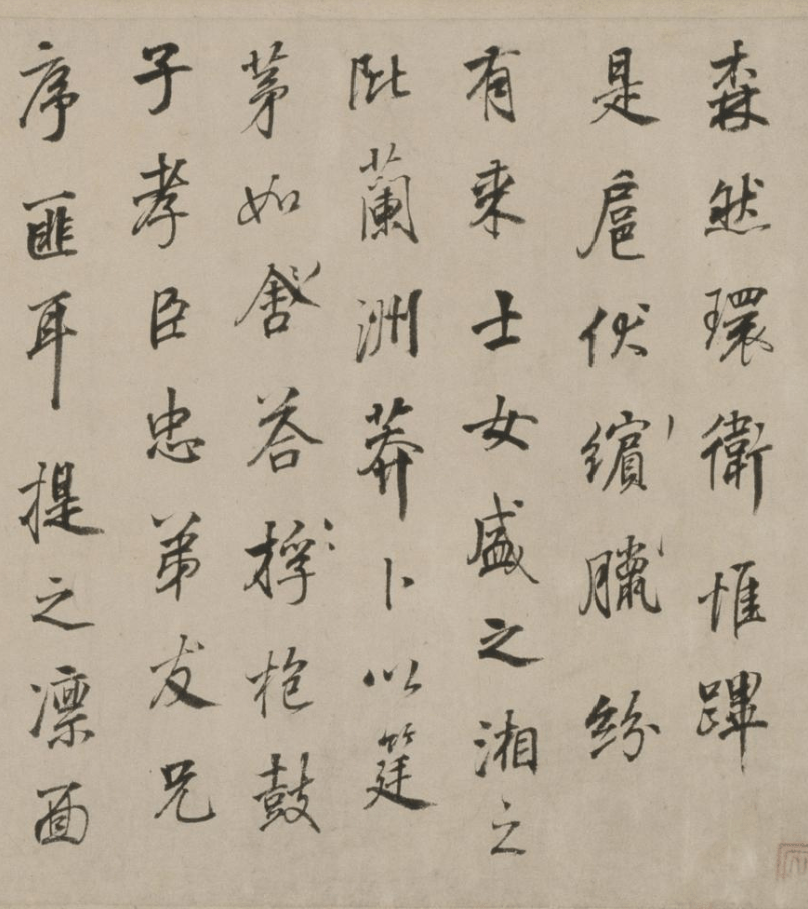 森然環衛惟蹕
是扈伏繽臘紛
有来士女盛之湘之
阰蘭洲莽卜以筳
茅如舍答桴枹鼓
子孝臣忠弟友兄
序匪耳提之凛面